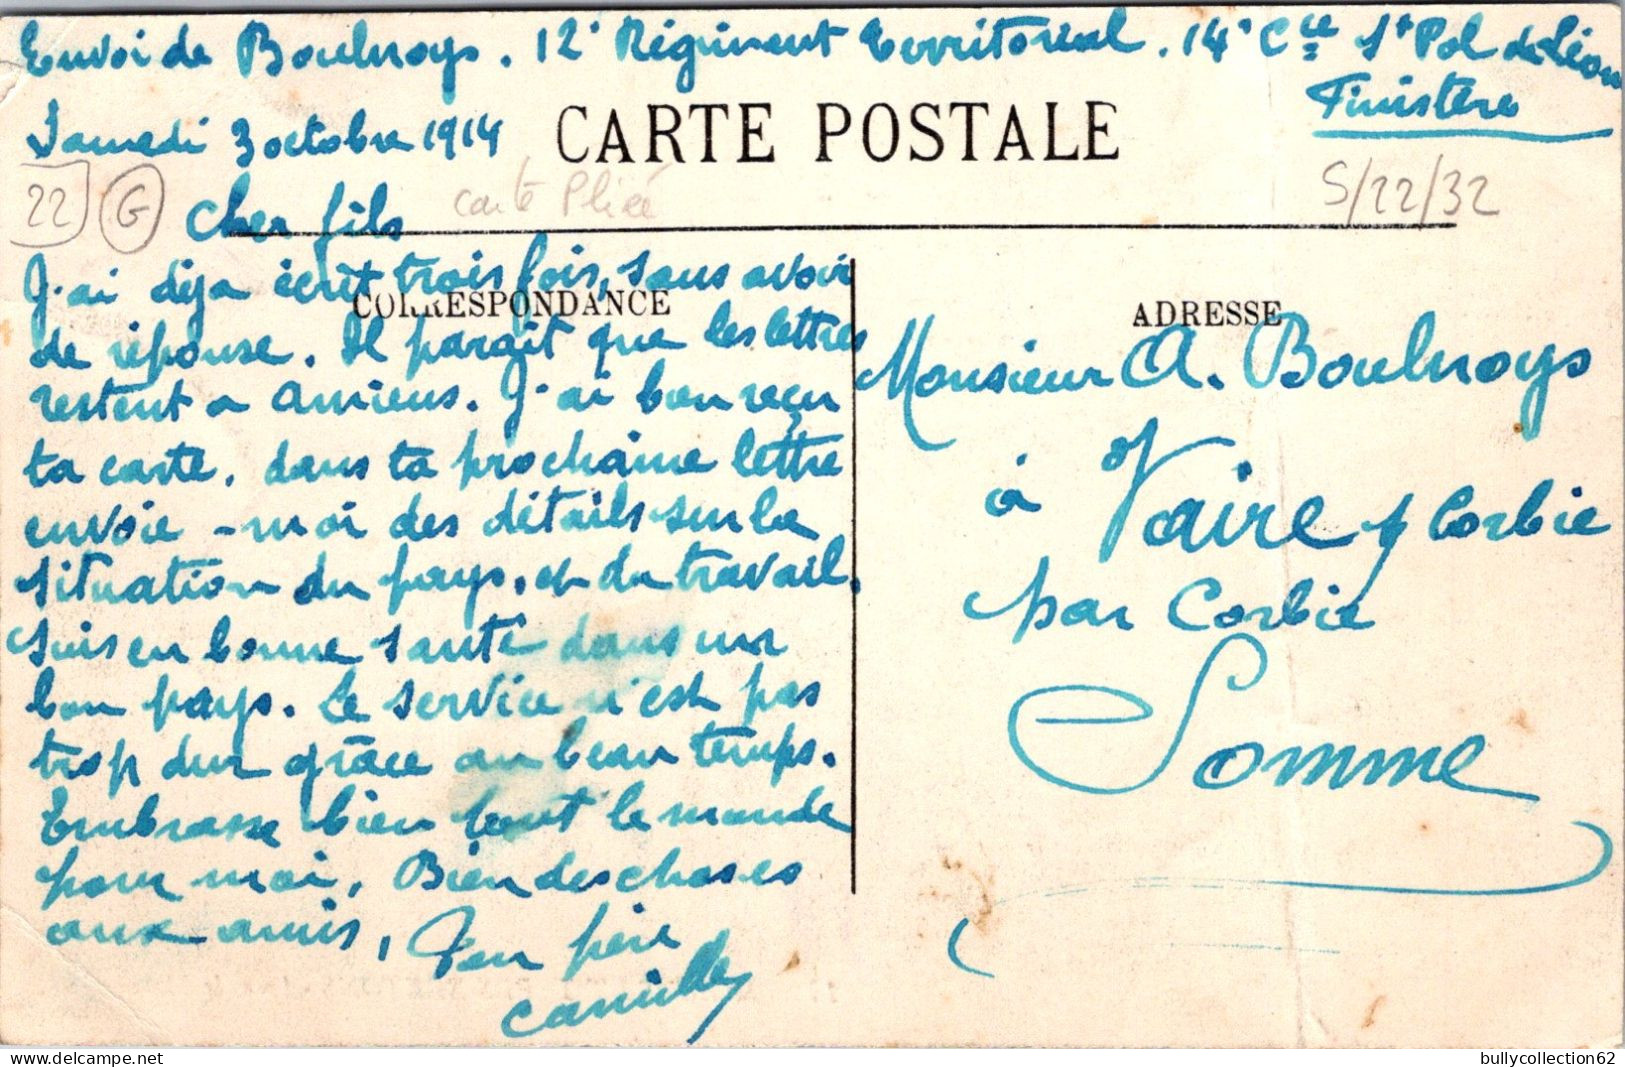 Envoi de Boulnoys. 12e Régiment Territorial. 14e Cie St Pol de Léon
Finistère
Samedi 3 octobre 1914
CARTE POSTALE
22
G
carte Pliée
S/22/32
Cher fils
CORRESPONDANCE
J'ai déja écrit trois fois, sans avoir
de réponse. Il parait que les lettres
restent a Amiens. J'ai bien reçu
ta carte. dans ta prochaine lettre
envoie-moi des détails sur la
situation du pays, et du travail.
Suis en bonne santé dans un
bon pays. Le service n'est pas
trop dur grâce au beau temps.
Embrasse bien tout le monde
pour moi. Bien des choses
aux amis, Ton père
Camille
ADRESSE
Monsieur A. Boulnoys
à Vaire s/ Corbie
par Corbie
Somme
bullycollection62